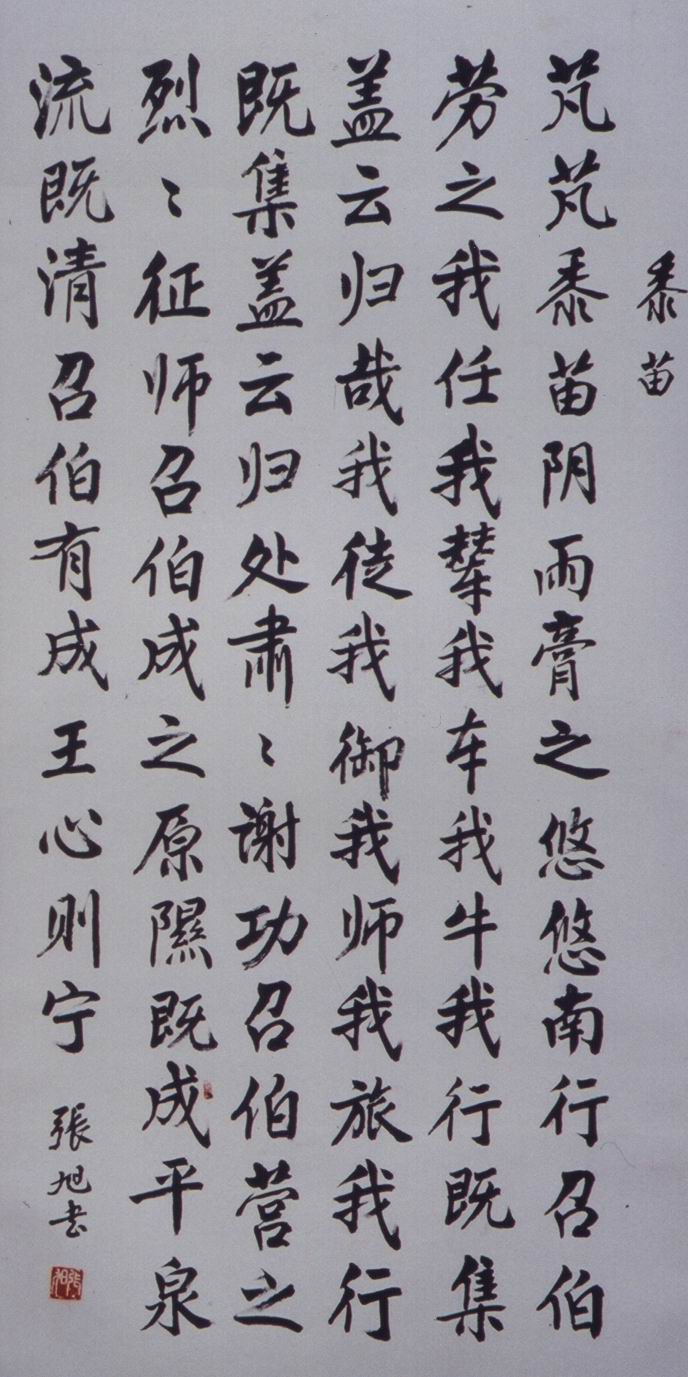 黍苗
芃芃黍苗阴雨膏之悠悠南行召伯
劳之我任我辇我车我牛我行既集
盖云归哉我徒我御我师我旅我行
既集盖云归处肃〻谢功召伯营之
烈〻征师召伯成之原隰既成平泉
流既清召伯有成王心则宁
張旭书
張旭